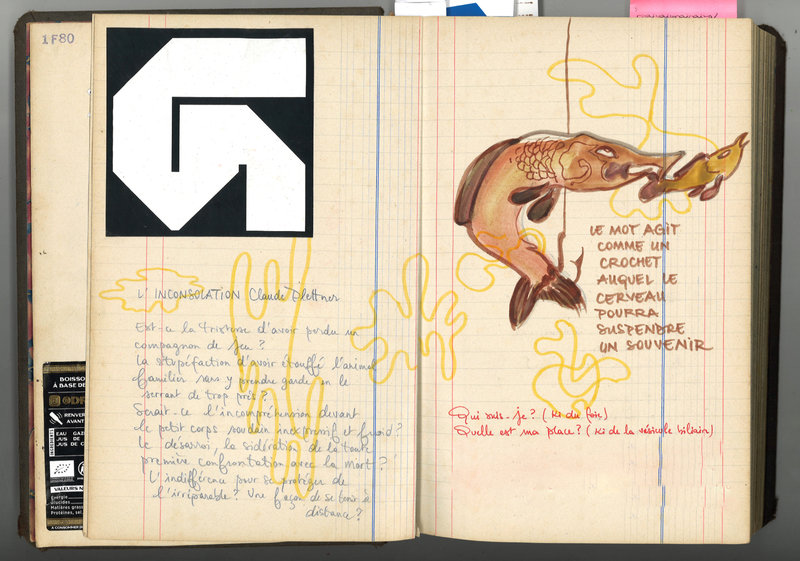 1F80
L'INCONSOLATION Claude
Est-ce la tristesse d'avoir perdu un
compagnon de jeu ?
La stupéfaction d'avoir étouffé l'animal
familier sans y prendre garde en le
serrant de trop près ?
Serait-ce l'incompréhension devant
le petit corps soudain inexpressif et froid ?
Le désarroi, la sidération de la toute
première confrontation avec la mort ?
L'indifférence pour se protéger de
l'irréparable ? Une façon de se tenir à
distance ?
BOISSO
À BASE DE
RENVER
AVANT
EAU GAZ
JUS DE
JUS DE C
BIO
VALEURS N
Énergie
Glucides
Matières grass
Protéines, sel
A CONSOMMER D
LE MOT AGIT
COMME UN
CROCHET
AUQUEL LE
CERVEAU
POURRA
SUSPENDRE
UN SOUVENIR
Qui suis-je ? (Ki du foie)
Quelle est ma place ? (Ki de la vésicule biliaire)